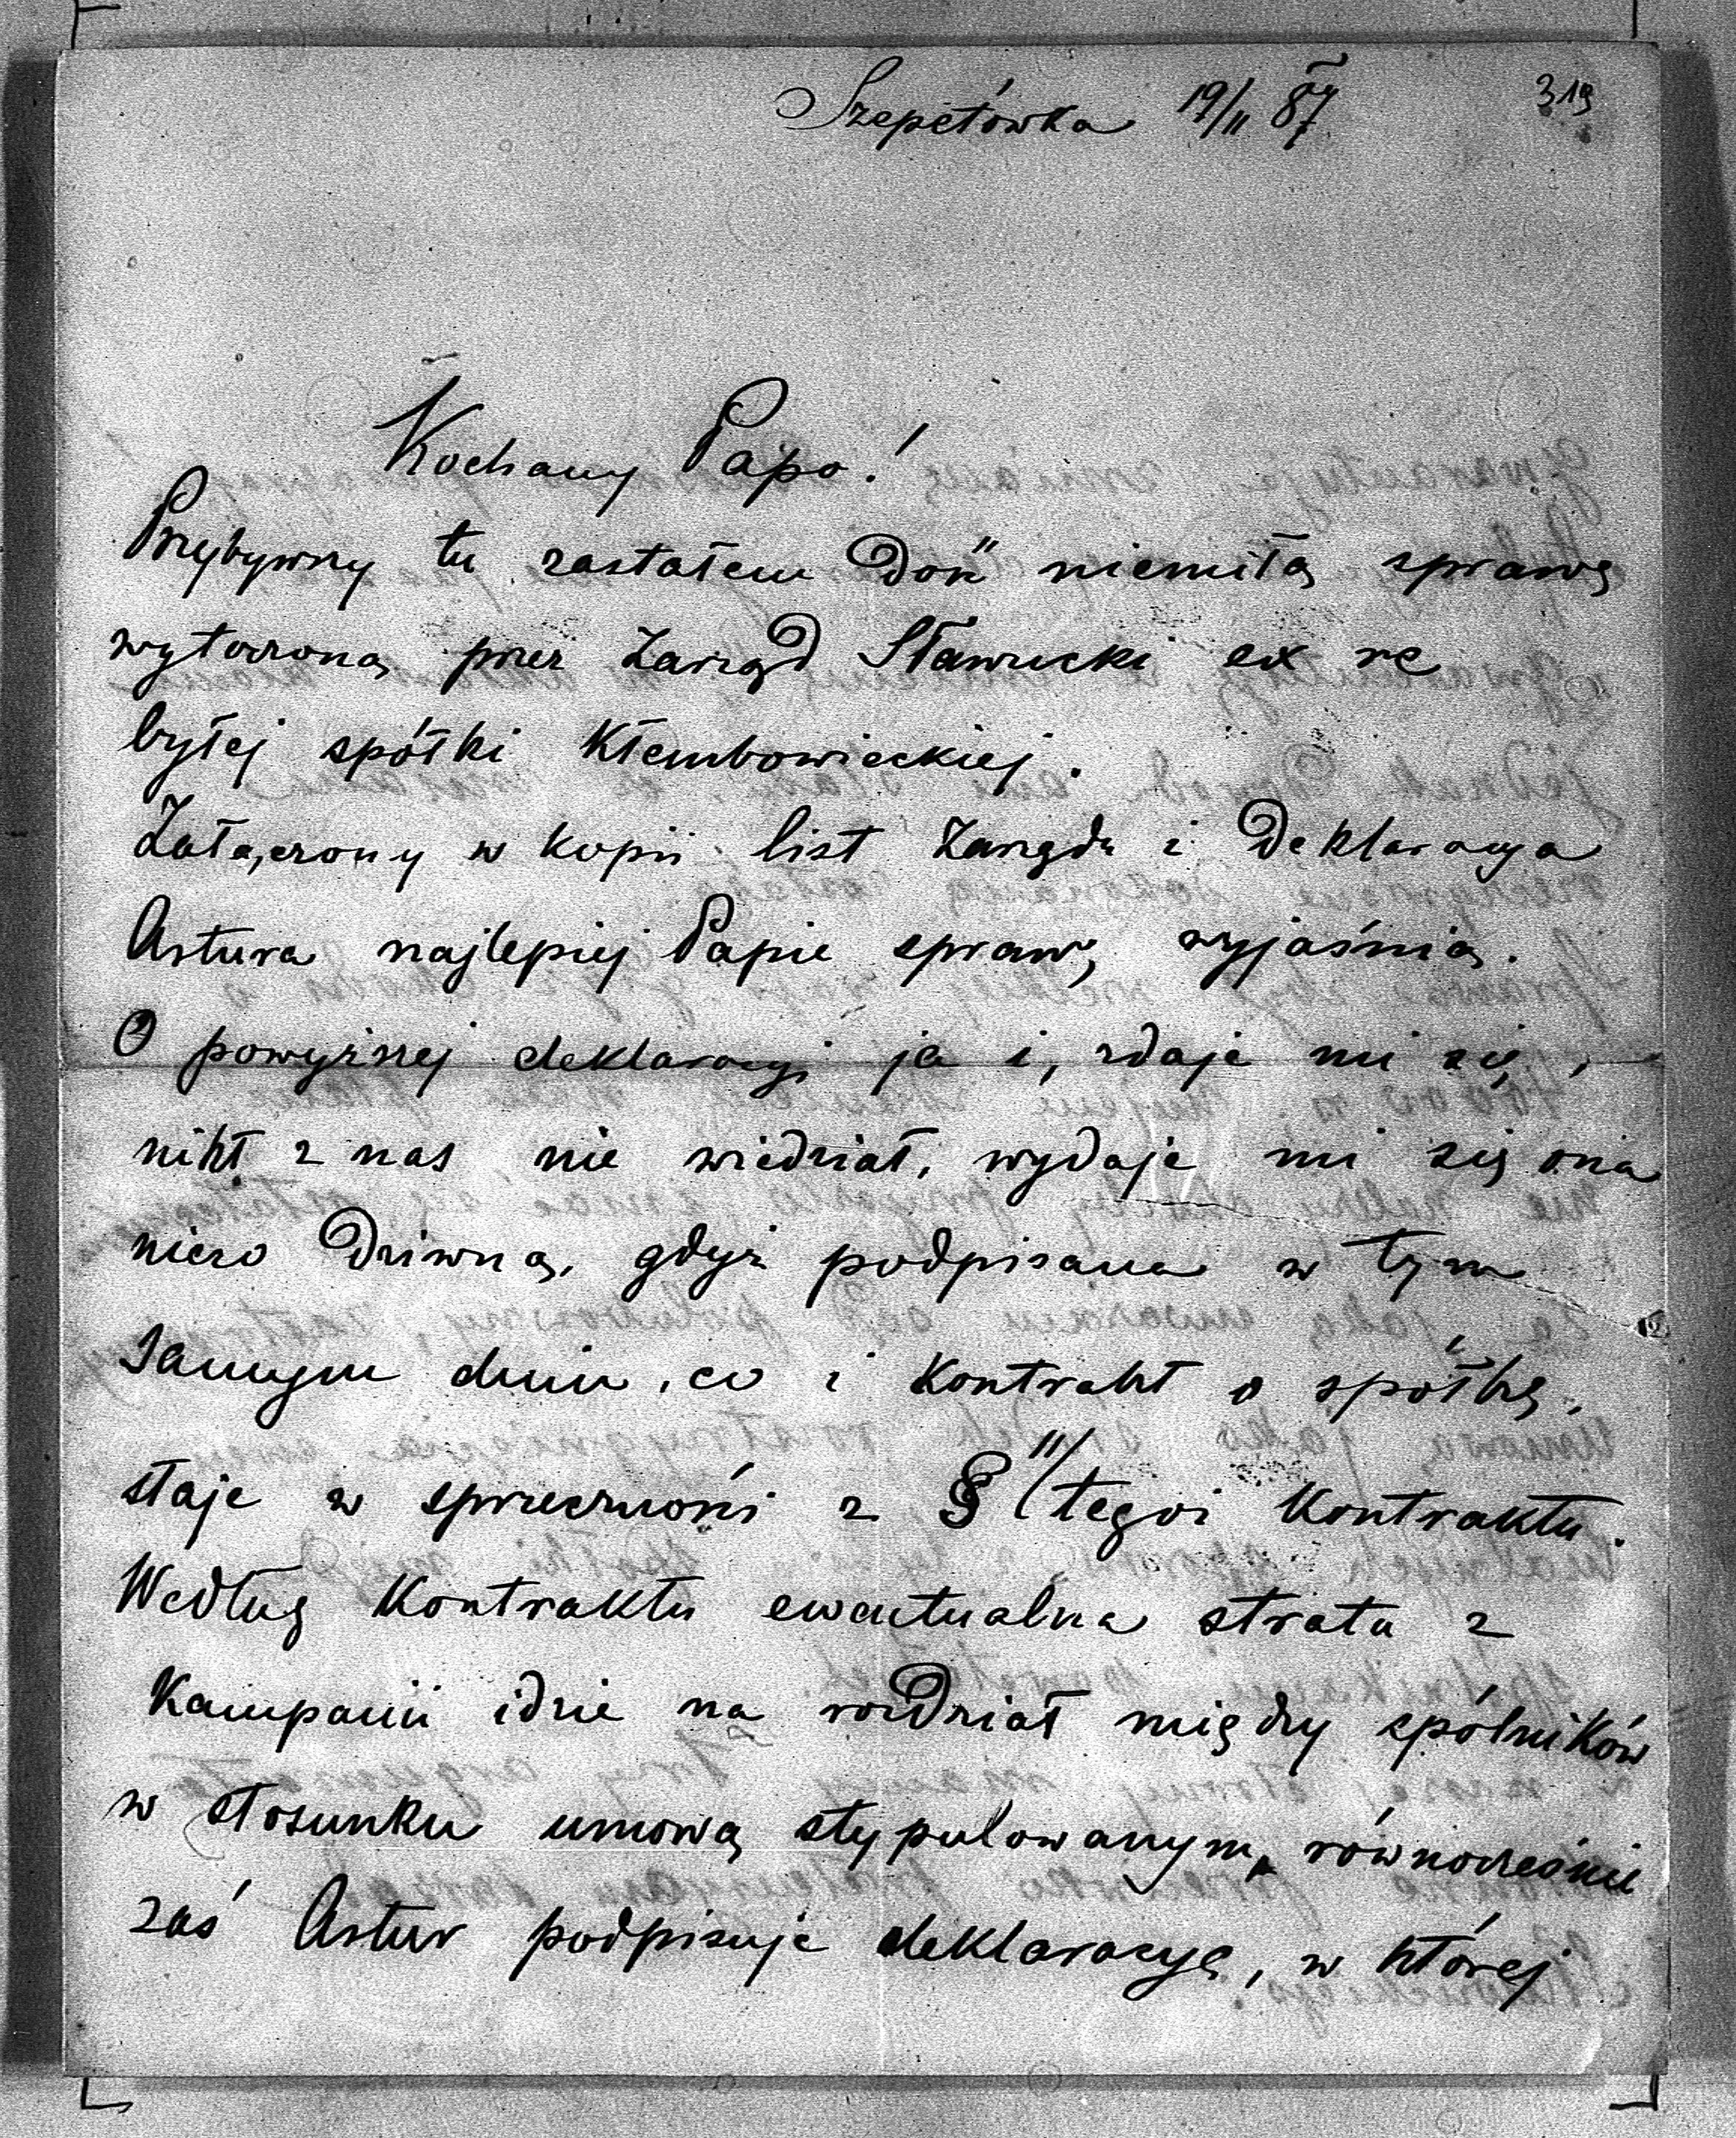 Szepetówka 19/II 87
319
Kochany Papo!
Przybywszy tu zastałem dość niemiłą sprawę
wytoczoną przez Zarząd Sławucki ex re
byłej spółki Kłembowieckiej.
Załączony w kopii list Zarządu i Deklaracya
Artura najlepiej Papie sprawę wyjaśnią.
O powyższej deklaracyi ja i, zdaje mi się,
nikt z nas nie wiedział, wydaje mi się ona
nieco dziwną, gdyż podpisana w tym
samym dniu, co i kontrakt o spółkę,
staje w sprzeczności z § 11/ tegoż kontraktu.
Według kontraktu ewentualna strata z
Kampanii idzie na rozdział między spólników
w stosunku umową stypulowanym, równocześnie
zaś Artur podpisuje deklaracyę, w której